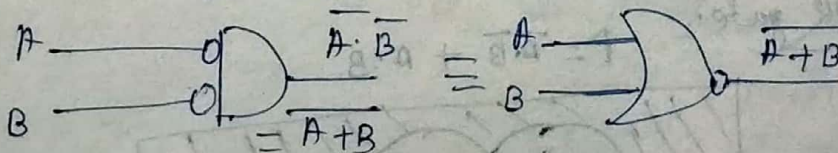 A
B
A̅ · B̅
= \overline{A+B}
≡
A
B
\overline{A+B}